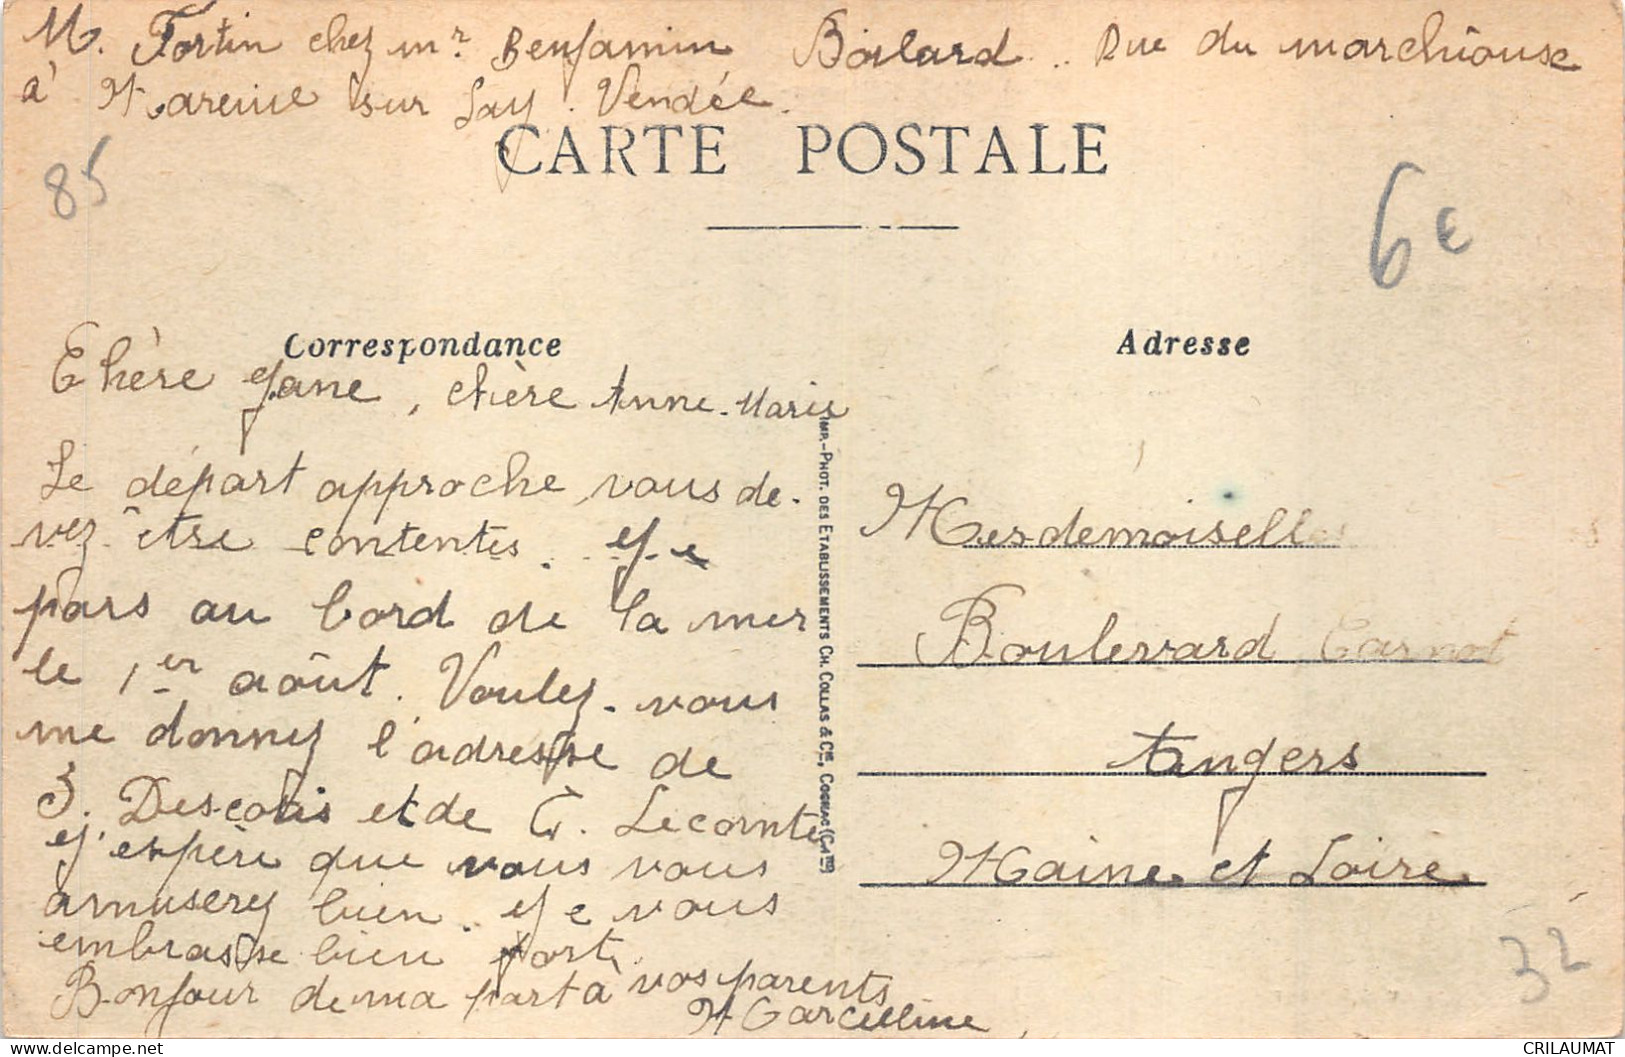 M. Fortin chez mr Benjamin Boilard.. Rue du marchiouse
à Mareuil sur Lay. Vendée.
CARTE POSTALE
85
6€
Correspondance
Adresse
Chère Jane, chère Anne-Marie
Le départ approche, vous de-
vez être contentes. Je
pars au bord de la mer
le 1er août. Voulez-vous
me donnez l'adresse de
J. Descolis et de G. Lecomte
j'espère que vous vous
amuserez bien. Je vous
embrasse bien fort.
Bonjour de ma part à vos parents
Marcelline
IMP.-PHOT. DES ETABLISSEMENTS CH. COLLAS & Cie, COGNAC (Chte)
Mesdemoiselles
Boulevard Carnot
Angers
Maine et Loire
32
CRILAUMAT